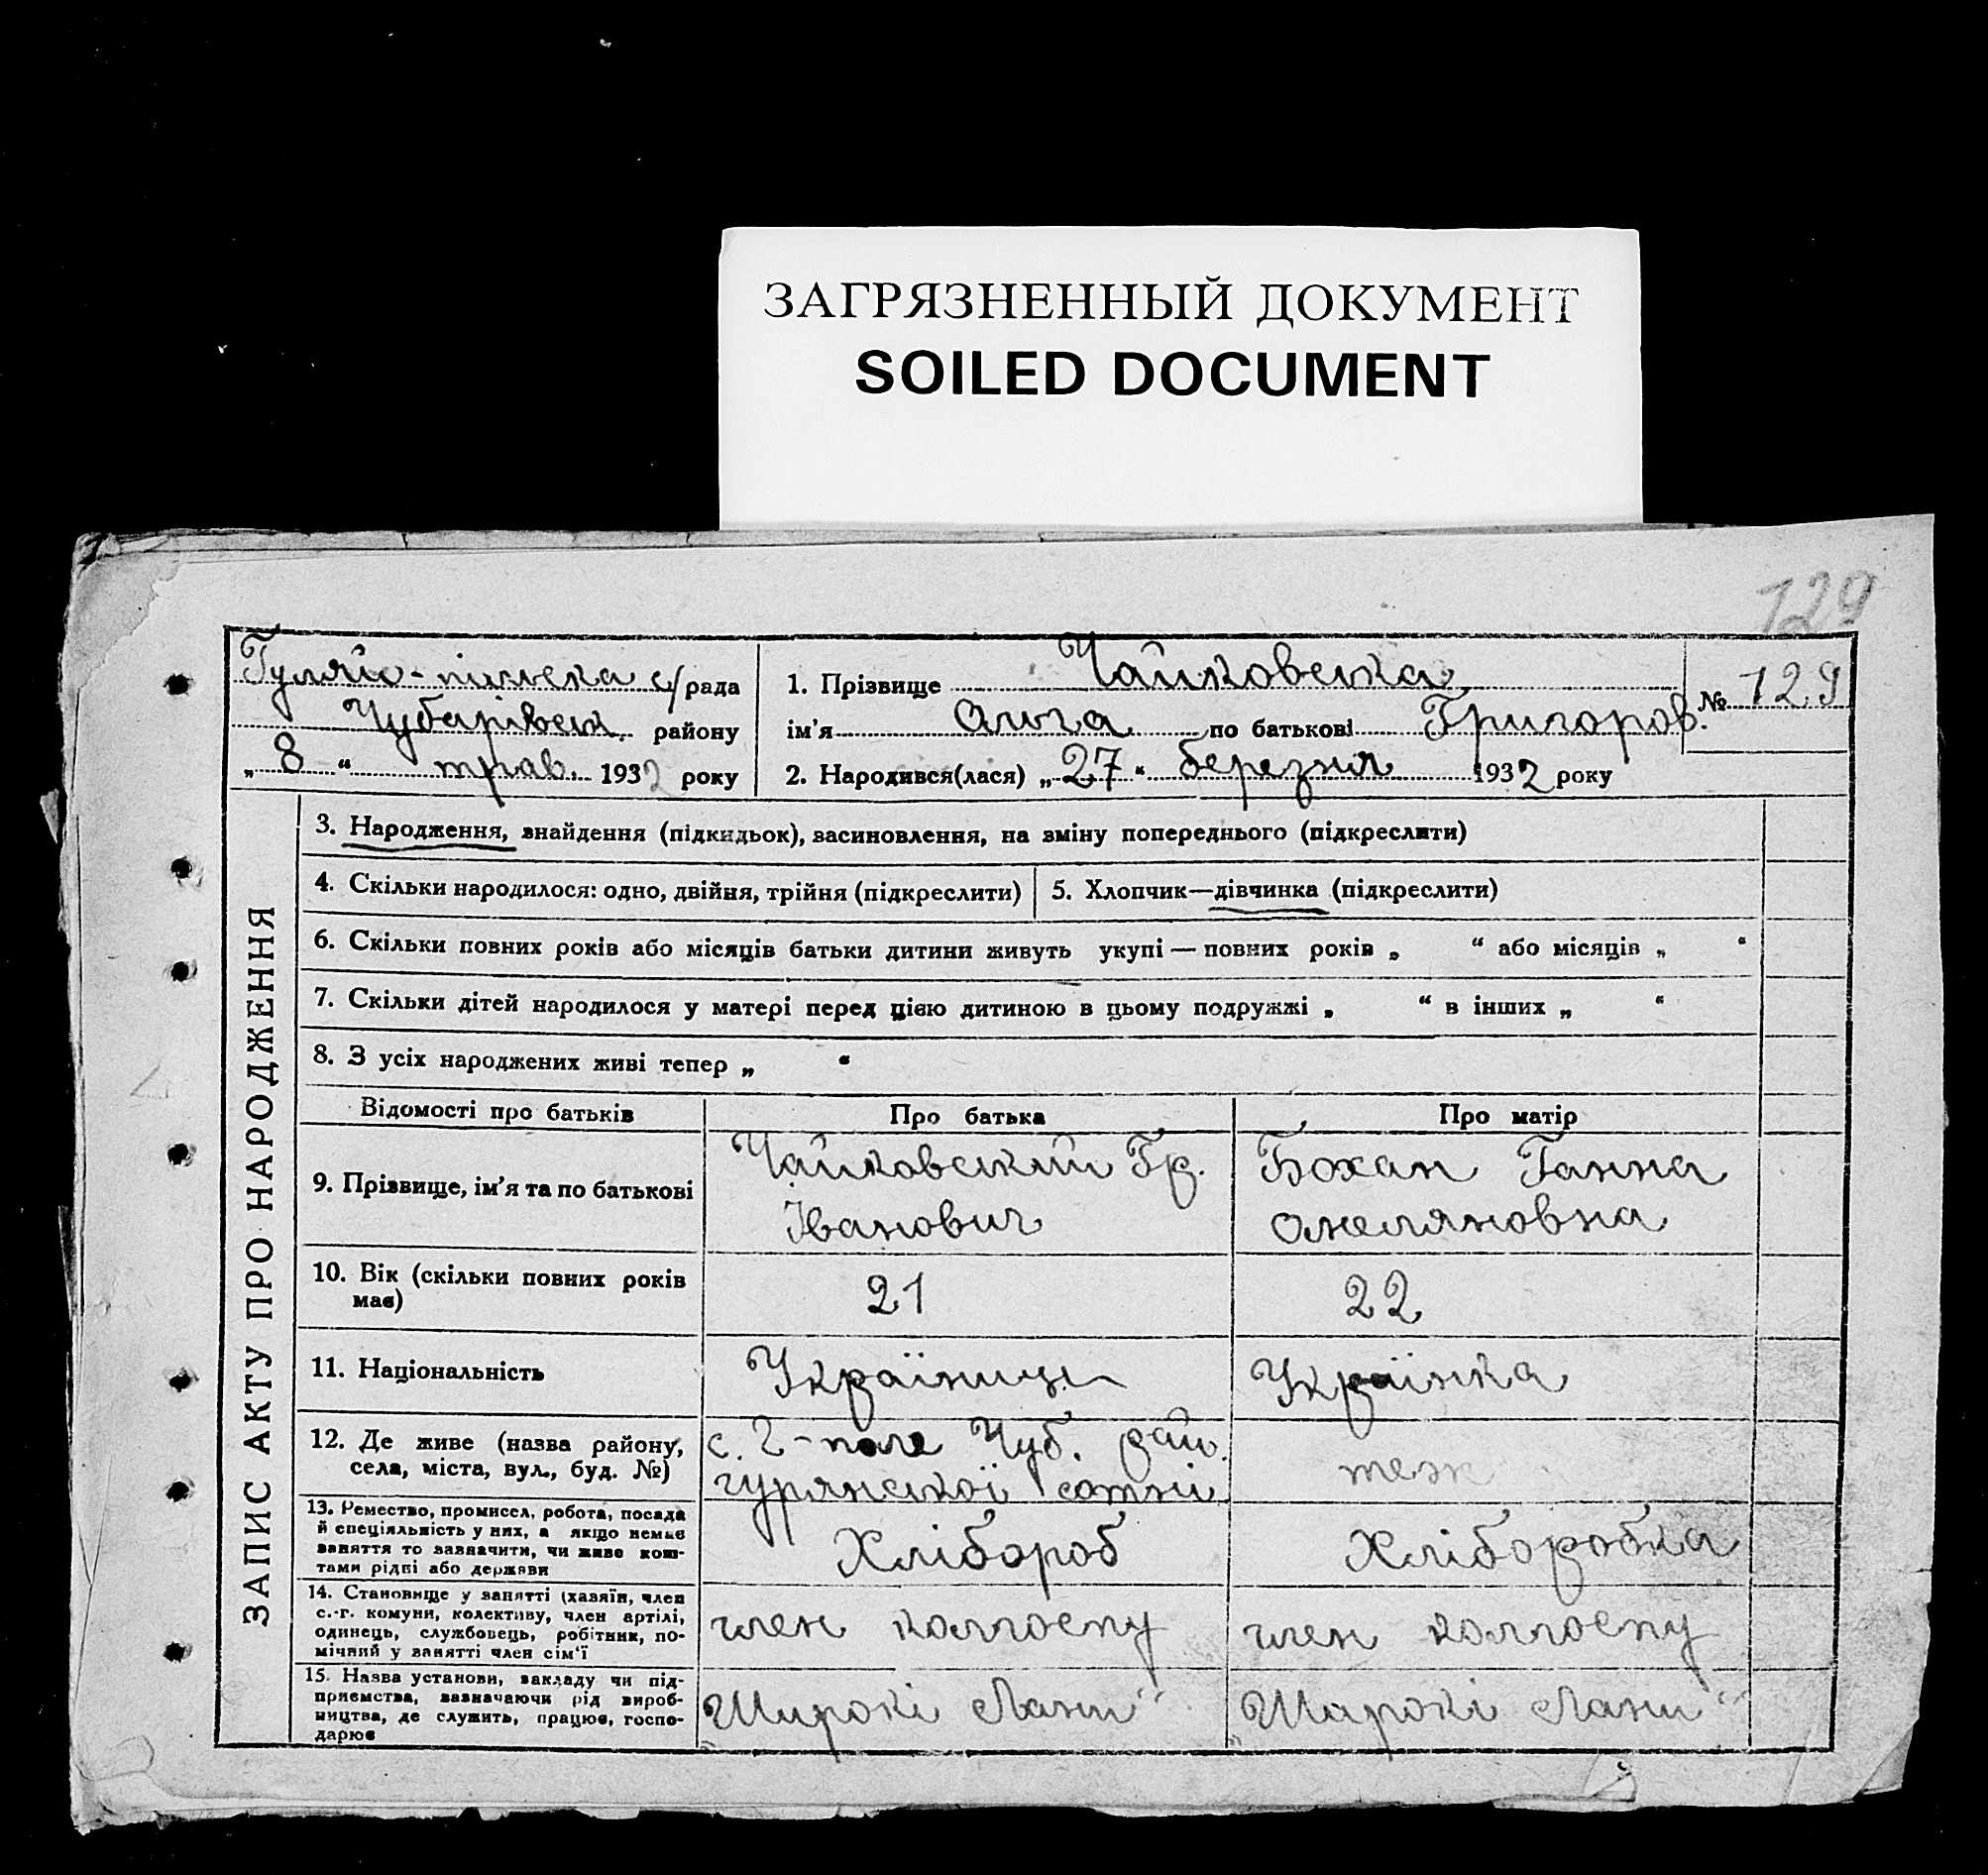 ЗАГРЯЗНЕННЫЙ ДОКУМЕНТ
SOILED DOCUMENT
129
Гуляйо-пільска с/рада
Чубарівськ. району
„ 8 “ трав. 1932 року
1. Прізвище Чайковська
№ 129
ім'я Ольга по батькові Григоров.
2. Народився(лася) „27“ березня 1932 року
ЗАПИС АКТУ ПРО НАРОДЖЕННЯ
3. Народження, знайдення (підкидьок), засиновлення, на зміну попереднього (підкреслити)
4. Скільки народилося: одно, двійня, трійня (підкреслити)
5. Хлопчик—дівчинка (підкреслити)
6. Скільки повних років або місяців батьки дитини живуть укупі — повних років „ “ або місяців „ “
7. Скільки дітей народилося у матері перед цією дитиною в цьому подружжі „ “ в інших „ “
8. З усіх народжених живі тепер „ “
Відомості про батьків
Про батька
Про матір
9. Прізвище, ім'я та по батькові
Чайковський Гр.
Іванович
Бохан Ганна
Омеляновна
10. Вік (скільки повних років
має)
21
22
11. Національність
Українець
Українка
12. Де живе (назва району,
села, міста, вул., буд. №)
с. Г-поле Чуб. рай.
гурянської сотні
теж
13. Ремество, промисел, робота, посада
й спеціяльність у них, а якщо немає
заняття то зазначити, чи живе кош-
тами рідні або держави
Хлібороб
Хліборобка
14. Становище у занятті (хазяїн, член
с.-г. комуни, колективу, член артілі,
одинець, службовець, робітник, по-
мічний у занятті член сім'ї
член колгоспу
член колгоспу
15. Назва установи, закладу чи під-
приємства, зазначаючи рід вироб-
ництва, де служить, працює, госпо-
дарює
„Широкі Лани“
„Широкі Лани“